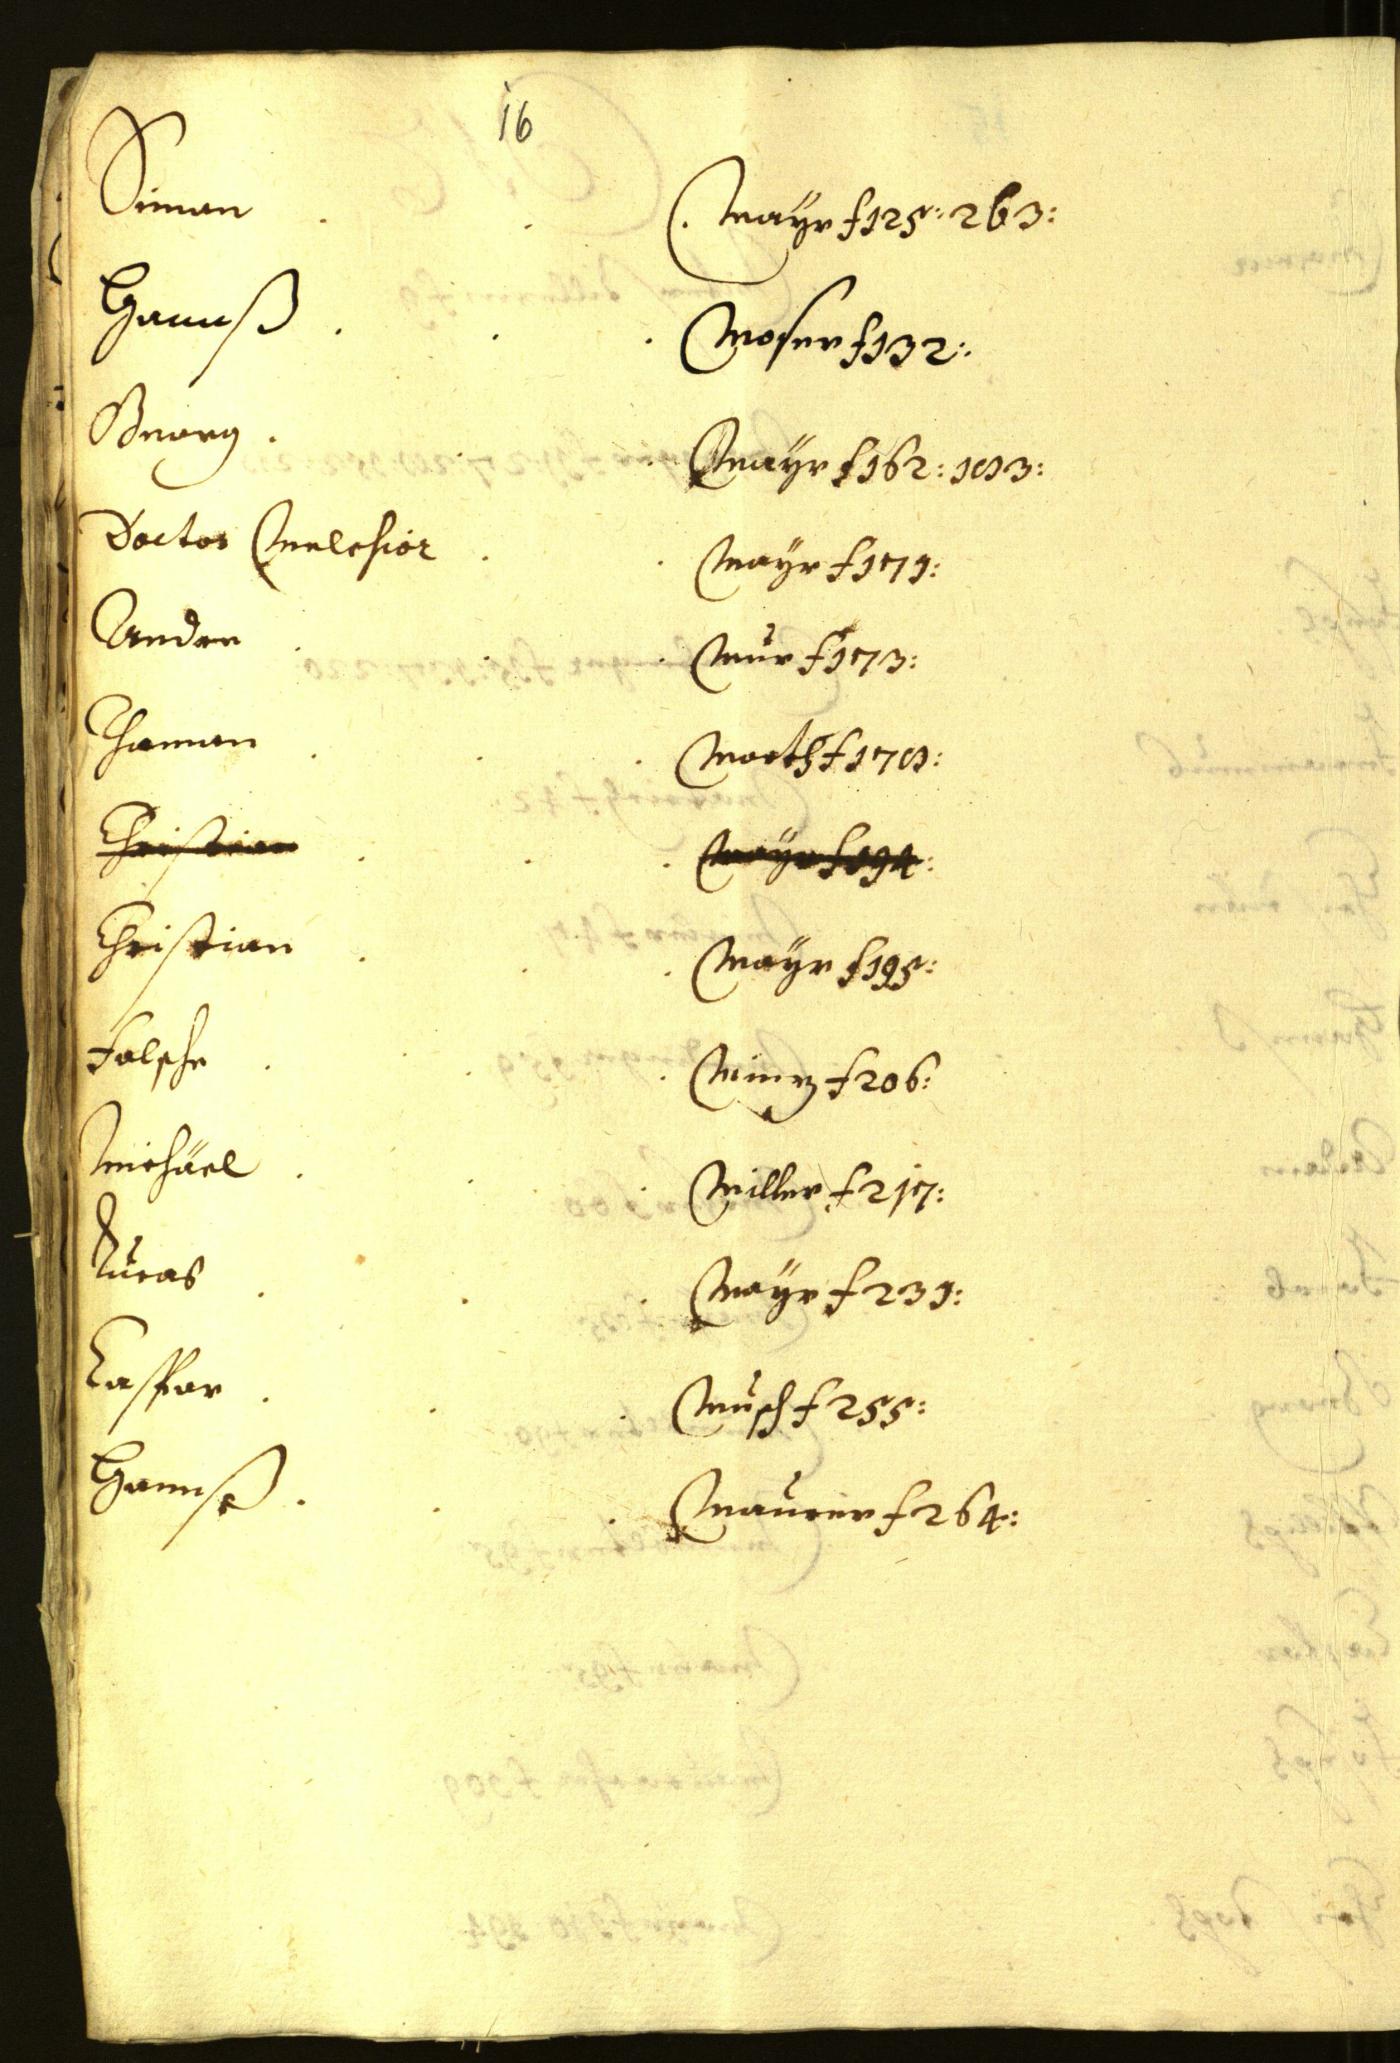 16
Siman . . Mayr f 125: 263:
Hannß . . . Moser f 132:
Georg . . . Mayr f 162: 183:
Doctor Melchior . . Mayr f 171:
Andre . . . Mur f 173:
Thaman . . . Morth f 178:
Christian . . . Mayr f 194:
Christian . . . Mayr f 195:
Falsche . . . . Müntz f 206:
Michäel . . . Miller f 217:
Lucas . . . Mayr f 231:
Caspar . . . Musch f 255:
Hannß . . . Maurer f 264: